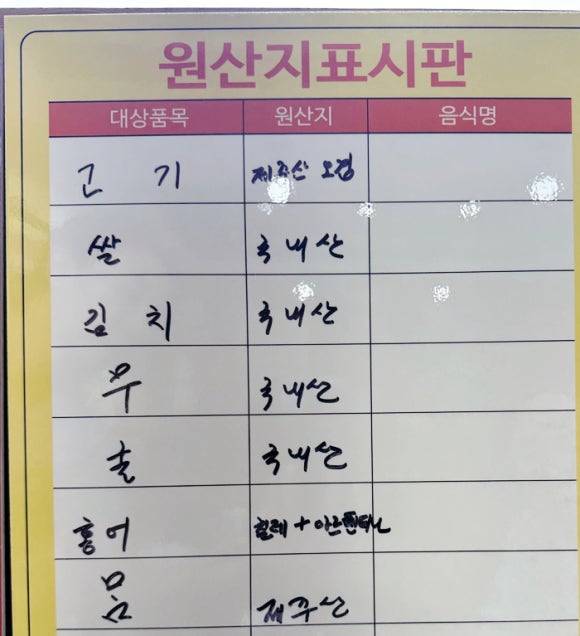 원산지표시판
대상품목 원산지 음식명
고기 제주산 오겹
쌀 국내산
김치 국내산
무 국내산
술 국내산
홍어 칠레 + 아르헨티나
몸 제주산